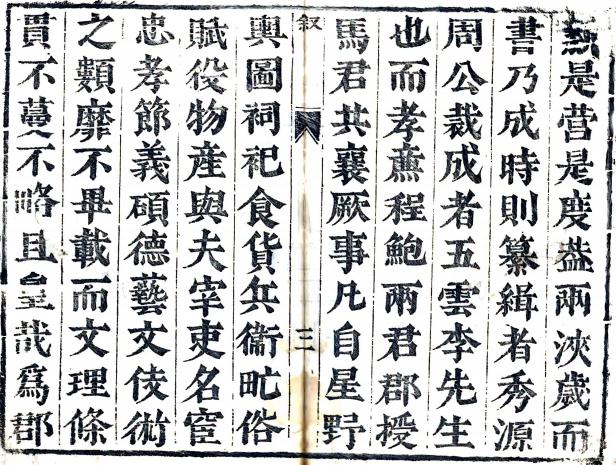 是营是度盖兩浹歲而
書乃成時則纂緝者秀源
周公裁成者五雲李先生
也而孝廉程鮑兩君郡授
馬君共襄厥事凡自星野
叙 三
輿圖祠祀食貨兵衞甿俗
賦役物産與夫宰吏名宦
忠孝節義碩德藝文伎術
之類靡不畢載而文理條
貫不蔓不略且皇哉爲郡